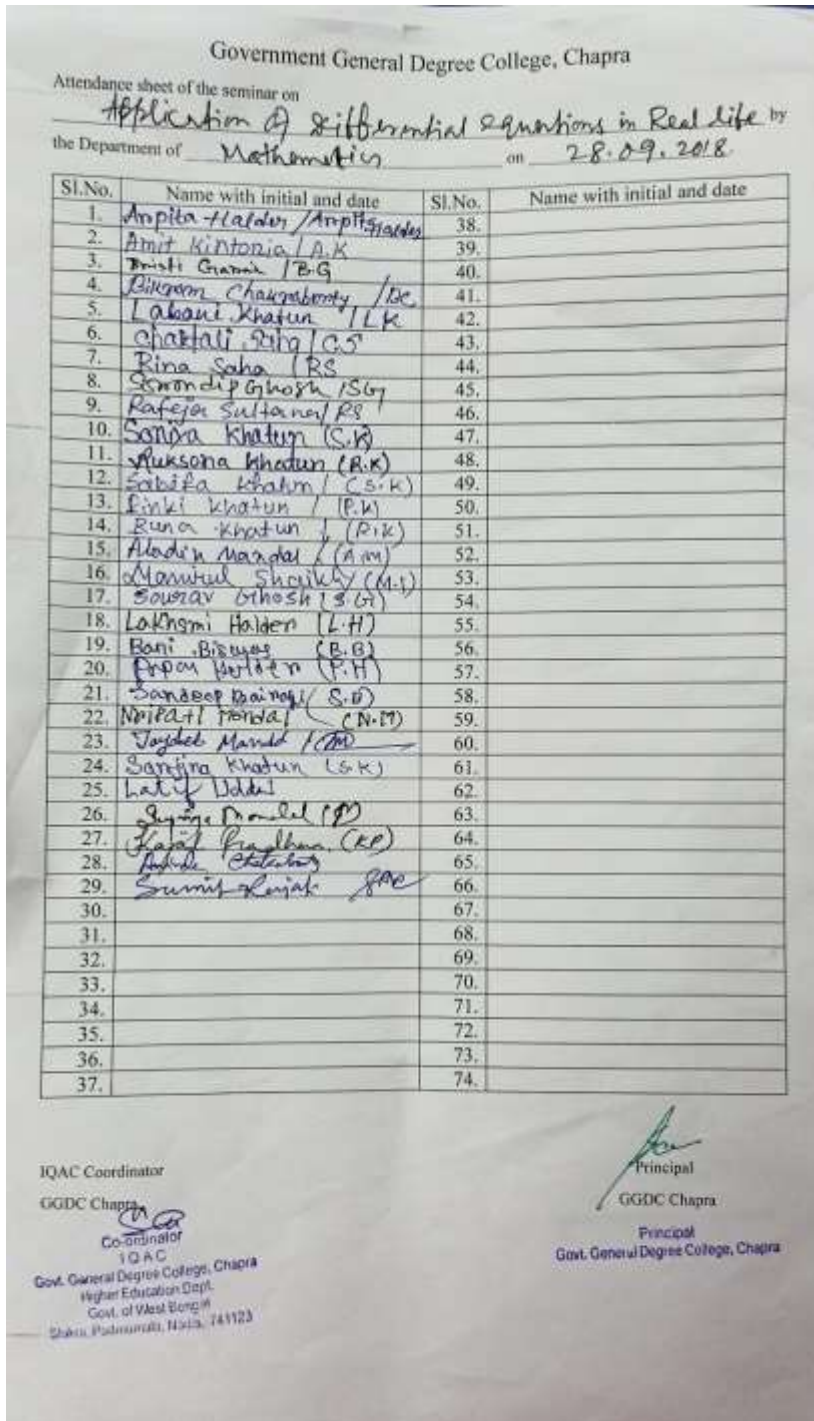 Government General Degree College, Chapra
Attendance sheet of the seminar on
Application of Differential equations in Real life by
the Department of Mathematics on 28.09.2018
Sl.No. Name with initial and date Sl.No. Name with initial and date
1. Arpita Halder / Arpita Halder 38.
2. Amit Kintonia / A.K 39.
3. Bristi / B.G 40.
4. Bikram Chakraborty / BC 41.
5. Labani Khatun / LK 42.
6. Chaitali Saha / CS 43.
7. Rina Saha / RS 44.
8. Ghosh / SG 45.
9. Rafeja Sultana / RS 46.
10. Soniya Khatun (S.K) 47.
11. Ruksona Khatun (R.K) 48.
12. Khatun / (S.K) 49.
13. Pinki Khatun / (P.K) 50.
14. Runa Khatun / (R.K) 51.
15. Aladin Mandal / (A.M) 52.
16. Manirul Shaikh / (M.S) 53.
17. Sourav Ghosh (S.G) 54.
18. Lakhsmi Halder (L.H) 55.
19. Bani Biswas (B.B) 56.
20. (P.H) 57.
21. Sandeep Bairagi / (S.B) 58.
22. Nripati Mondal (N.M) 59.
23. Joydeb Mandal / 60.
24. Sanjina Khatun (S.K) 61.
25. Latif Uddin 62.
26. Mondal 63.
27. Kajal Pradhan (KP) 64.
28. 65.
29. Sumit 66.
30. 67.
31. 68.
32. 69.
33. 70.
34. 71.
35. 72.
36. 73.
37. 74.
IQAC Coordinator
GGDC Chapra
Co-ordinator
IQAC
Govt. General Degree College, Chapra
Higher Education Dept.
Govt. of West Bengal
Nadia, 741123
Principal
GGDC Chapra
Principal
Govt. General Degree College, Chapra